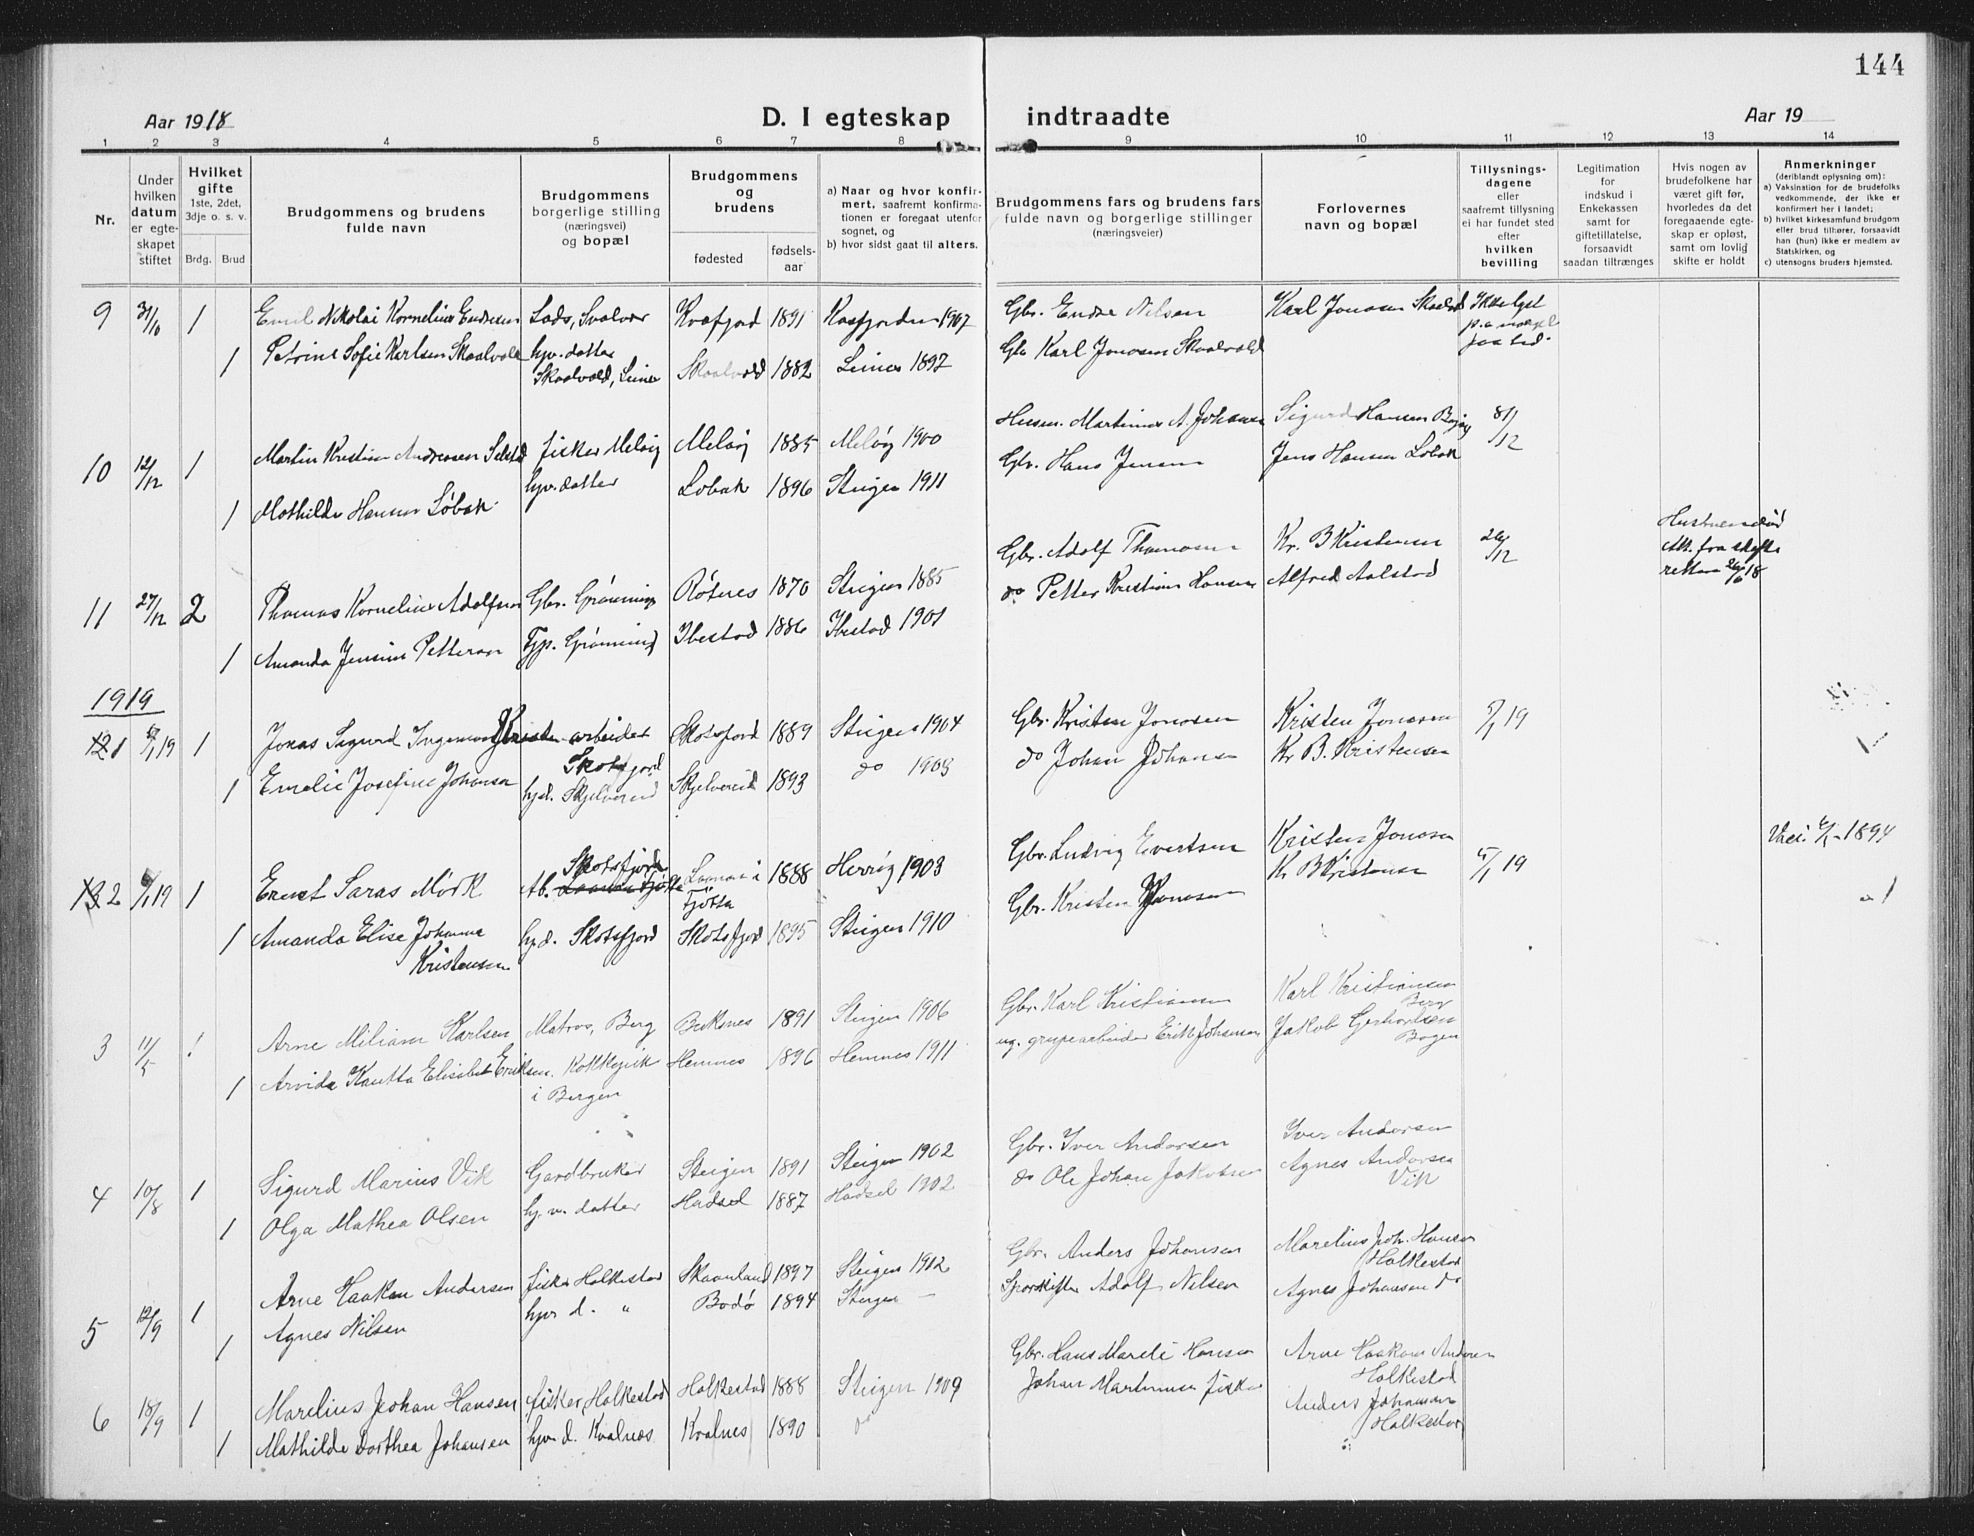 144
Aar 1918
D. I egteskap indtraadte
Aar 19
1 2 3 4 5 6 7 8 9 10 11 12 13 14
Nr.
Under hvilken datum er egteskapet stiftet
Hvilket gifte
1ste, 2det, 3dje o. s. v.
Brdg. Brud
Brudgommens og brudens fulde navn
Brudgommens borgerlige stilling (næringsvei) og bopæl
Brudgommens og brudens
fødested
fødselsaar
a) Naar og hvor konfirmert, saafremt konfirmationen er foregaat utenfor sognet, og
b) hvor sidst gaat til alters.
Brudgommens fars og brudens fars fulde navn og borgerlige stillinger (næringsveier)
Forlovernes navn og bopæl
Tillysningsdagene eller saafremt tillysning ei har fundet sted efter hvilken bevilling
Legitimation for indskud i Enkekassen samt for giftetillatelse, forsaavidt saadan tiltrænges
Hvis nogen av brudefolkene har været gift før, hvorledes da det foregaaende egteskap er opløst, samt om lovlig skifte er holdt
Anmerkninger
(deriblandt oplysning om):
a) Vaksination for de brudefolks vedkommende, der ikke er konfirmert her i landet;
b) hvilket kirkesamfund brudgom eller brud tilhører, forsaavidt han (hun) ikke er medlem av Statskirken, og
c) utensogns bruders hjemsted.
9 1 Emil Nikolai Kornelius Endresen Lods, Svolvær Kvæfjord 1891 1907 Gbr. Endre Nilsen Karl Jonosen Skaalvold
1 Petrine Sofie Karlsen Skaalvold hjv. datter Skaalvold, Leines Skaalvold 1882 Leines 1897 Gbr Karl Jonosen Skaalvold
10 12/12 1 Martin Kristian Andreasen Selstad fisker Meløy Meløy 1885 Meløy 1900 Husm. Martinus A. Johansen Sigurd Hansen 8/12
1 Mathilde Hansen Løbak hjv. datter Løbak 1896 Steigen 1911 Gbr. Hans Jensen Jens Hansen Løbak
11 27/12 2 Thomas Kornelius Adolfsen Gbr. Grønning Røtnes 1870 Steigen 1885 Gbr. Adolf Thomasen Kr. B Kristensen 26/12 Hustruen død Att. fra skifteretten 26/6 18
1 Amanda Jensine Pettersen Tjp. Grønning Ibestad 1886 Ibestad 1901 do Petter Kristian Hansen Alfred Aalstad
1919
1 6/1 19 1 Jonas Sigurd Ingemar Kristensen arbeider Skotsfjord Skotsfjord 1889 Steigen 1904 Gbr. Kristen Jonosen Kristen Jonosen 5/1 19
1 Emelie Josefine Johansen hjd. Skjelvereid Skjelvereid 1893 do 1908 do Johan Johansen Kr B. Kristensen
2 6/1 19 1 Ernst Saras Mørk Ab. Skotsfjord i Tjøtta 1888 Herrøy 1903 Gbr. Ludvig Evertsen Kristen Jonosen 5/1 19 1894
1 Amanda Elise Johanna Kristensen hjd. Skotsfjord Skotsfjord 1895 Steigen 1910 Gbr. Kristen Jonosen Kr B Kristensen
3 11/5 1 Arne Miliam Karlsen Matros, Berg Buksnes 1891 Steigen 1906 Gbr. Karl Kristiansen Karl Kristiansen Berg
1 Arvida Kautta Elisabet Eriksen Kokkepike i Bergen Hemnes 1896 Hemnes 1911 ug. grubearbeider Erik Johansen Jakob Gerhardsen Bogen
4 10/8 1 Sigurd Marius Vik Gardbruker Steigen 1891 Steigen 1902 Gbr. Iver Andersen Iver Andersen
1 Olga Mathea Olsen hj. v. datter Hadsel 1887 Hadsel 1902 do Ole Johan Jakobsen Agnes Andersen Vik
5 12/9 1 Arne Haakon Andersen fisker Holkestad Skaanland 1897 Steigen 1912 Gbr. Anders Johansen Marelius Joh. Hansen Holkestad
1 Agnes Nilsen hjv d. " Bodø 1894 Steigen — Sporskifter Adolf Nilsen Agnes Johansen do
6 18/9 1 Marelius Johan Hansen fisker, Holkestad Holkestad 1888 Steigen 1909 Gbr. Hans Hansen Arne Haakon Andersen Holkestad
1 Mathilde Dorthea Johansen hjv. d. Kvalnes Kvalnes 1890 do Johan Martinusen fisker Anders Johansen Holkestad